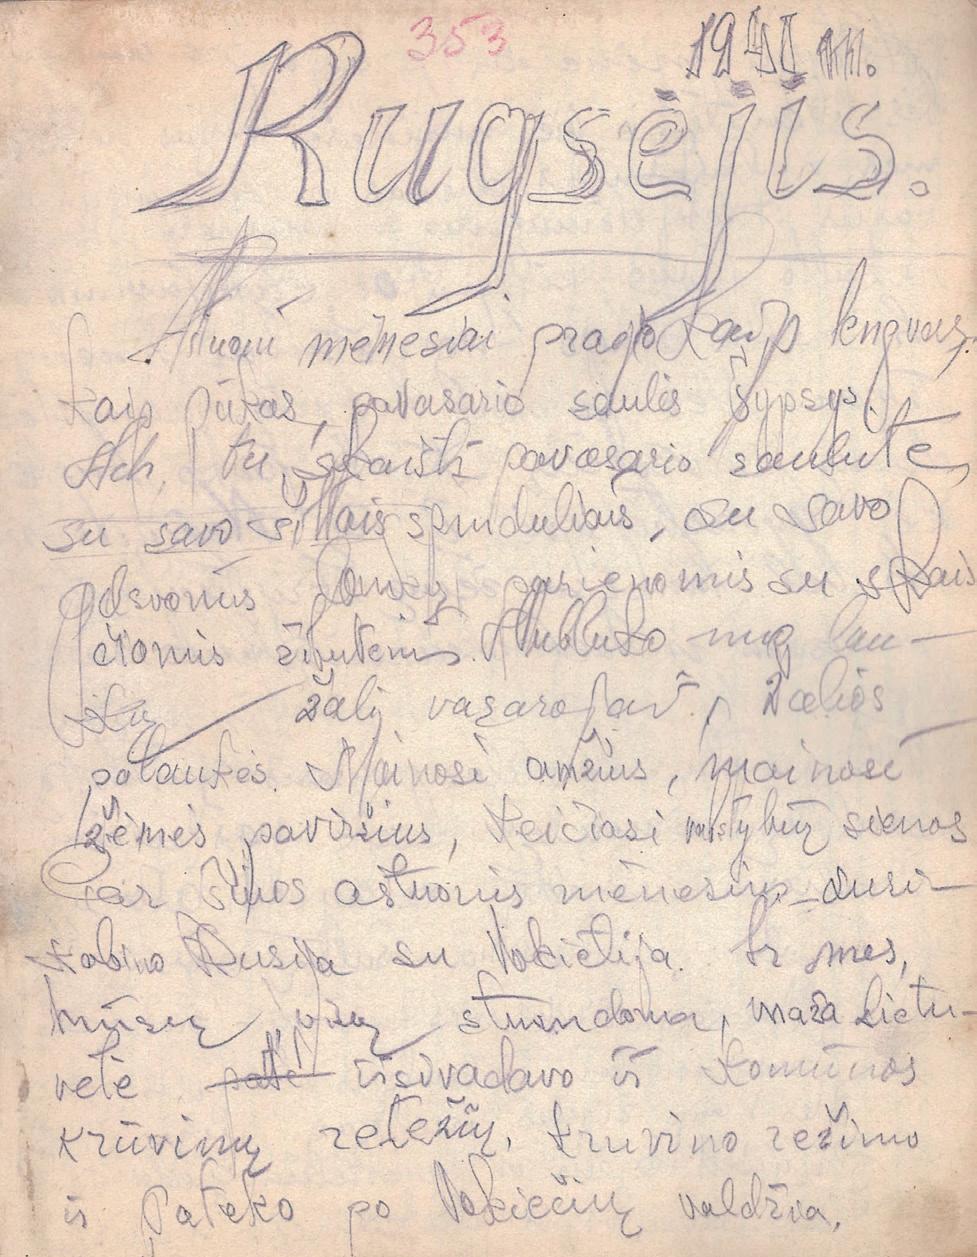 353
1941 m.
Rugsėjis.
Aštuoni mėnesiai praėjo kaip lengvas,
kaip pūkas, pavasario saulės šypsys.
Ach, tu, skaisti pavasario saulute,
su savo šiltais spinduliais, su savo
žiutėmis.
žalį vasarojaus, žalios
palaukės. Mainosi amžius, mainosi
žemės paviršius, keičiasi valstybių sienos
Per šiuos aštuonis mėnesius susi-
kabino Rusija su Vokietija. Ir mes,
mūsų visų stumdoma, maža Lietu-
vėlė išsivadavo iš komunos
krūvinų retežių, kruvino režimo
ir pateko po Vokiečių valdžia.